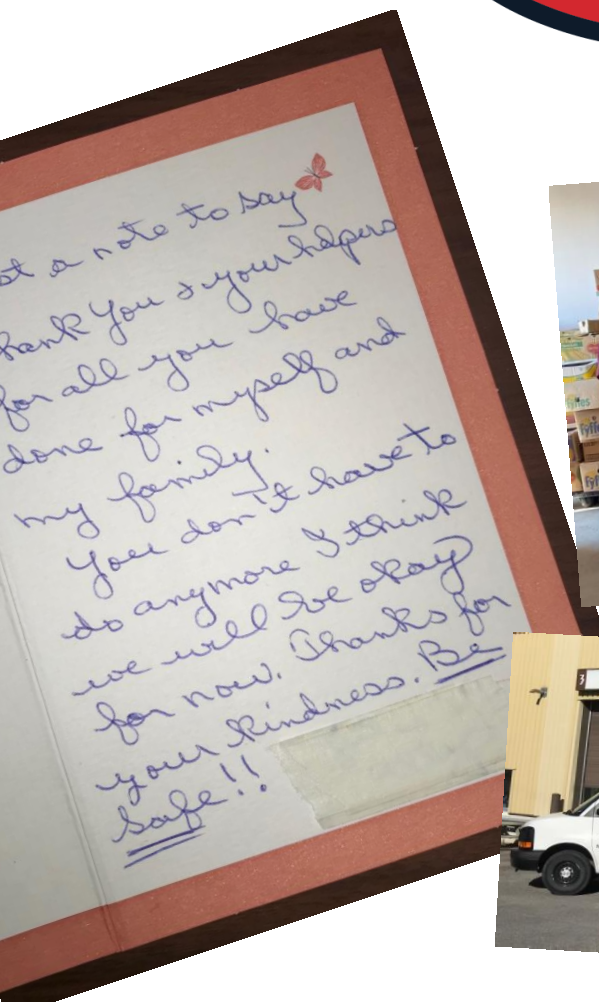 ot a note to say
hank you & your helpers
for all you have
done for myself and
my family.
You don't have to
do anymore I think
we will be okay
for now. Thanks for
your kindness. Be
safe!!
fyffes
3